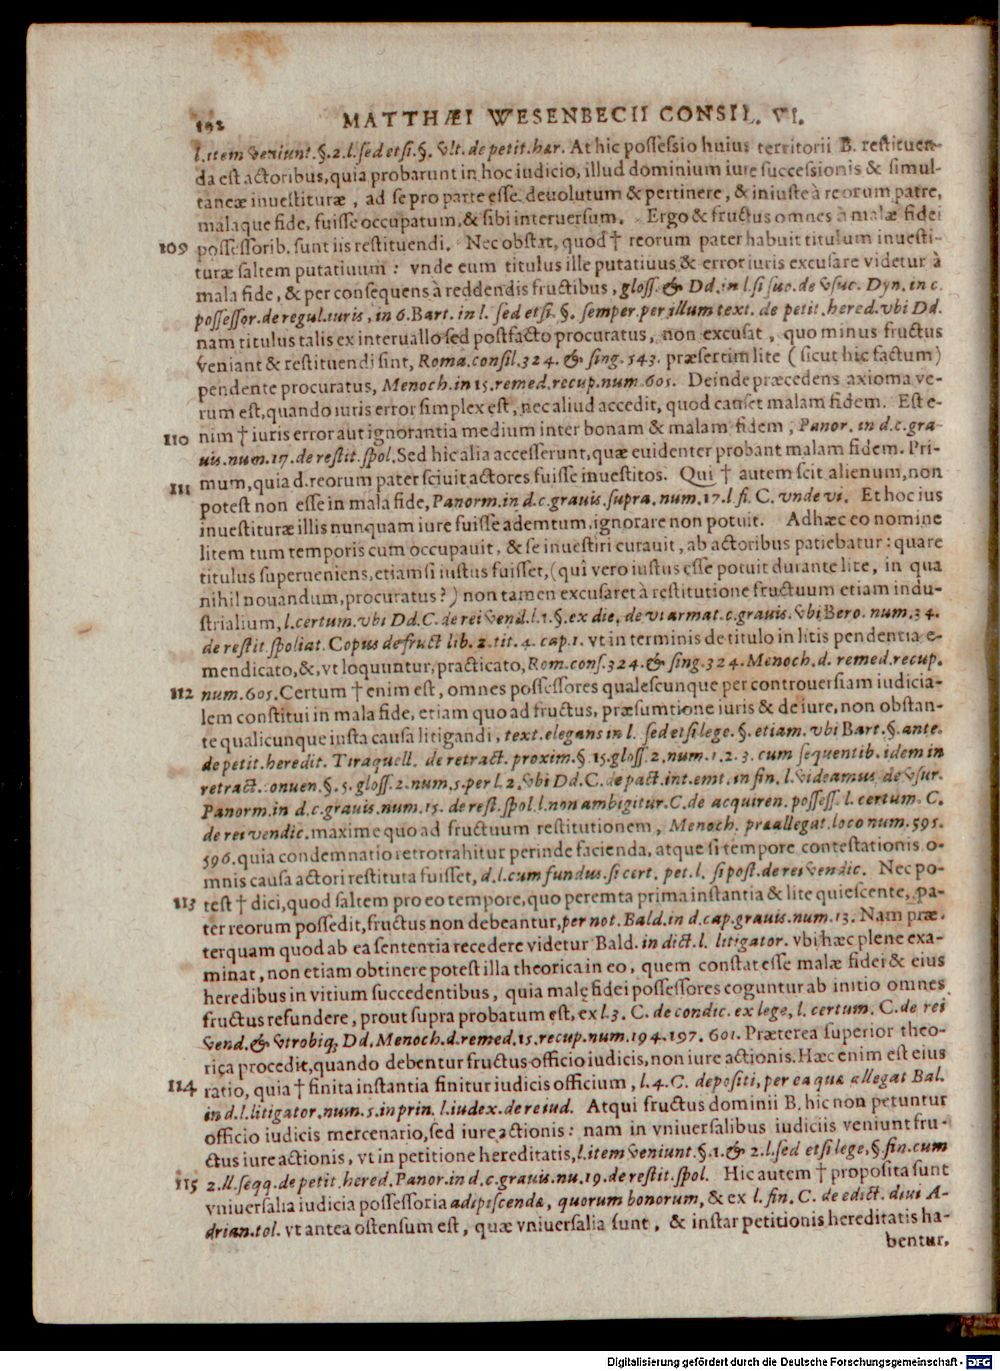 192 MATTHÆI WESENBECII CONSIL. VI.
l.item veniunt.§.2.l.sed etsi.§. vlt.de petit.hær. At hic possessio huius territorii B. restituen-
da est actoribus, quia probarunt in hoc iudicio, illud dominium iure successionis & simul-
taneæ inuestituræ, ad se pro parte esse deuolutum & pertinere, & iniuste à reorum patre,
malaque fide, fuisse occupatum, & sibi interuersum. Ergo & fructus omnes à malæ fidei
109 possessorib. sunt iis restituendi. Nec obstat, quod † reorum pater habuit titulum inuesti-
turæ saltem putatiuum: vnde eum titulus ille putatiuus & error iuris excusare videtur à
mala fide, & per consequens à reddendis fructibus, gloss. & Dd. in l. si fuc. de vsuc. Dyn. in c.
possessor.de regul.iuris, in 6. Bart. in l. sed etsi. §. semper. per illum text. de petit.hered.vbi Dd.
nam titulus talis ex interuallo sed postfacto procuratus, non excusat, quo minus fructus
veniant & restituendi sint, Roma.consil.324. & sing.543. præsertim lite (sicut hic factum)
pendente procuratus, Menoch.in 15.remed.recup.num.601. Deinde præcedens axioma ve-
rum est, quando iuris error simplex est, nec aliud accedit, quod causet malam fidem. Est e-
110 nim † iuris error aut ignorantia medium inter bonam & malam fidem, Panor. in d.c.gra-
uis.num.17.de restit.spol. Sed hic alia accesserunt, quæ euidenter probant malam fidem. Pri-
111 mum, quia d.reorum pater sciuit actores fuisse inuestitos. Qui † autem scit alienum, non
potest non esse in mala fide, Panorm.in d.c.grauis.supra.num.17.l.fi. C. vnde vi. Et hoc ius
inuestituræ illis nunquam iure fuisse ademtum, ignorare non potuit. Adhæc eo nomine
litem tum temporis cum occupauit, & se inuestiri curauit, ab actoribus patiebatur: quare
titulus superueniens, etiamsi iustus fuisset, (qui vero iustus esse potuit durante lite, in qua
nihil nouandum, procuratus?) non tamen excusaret à restitutione fructuum etiam indu-
strialium, l.certum.vbi Dd.C.de rei vend.l.1.§.ex die, de vi armat.c.grauis.vbi Bero. num.34.
de restit.spoliat. Copus de fruct lib. 2. tit. 4. cap.1. vt in terminis de titulo in litis pendentia e-
mendicato, &, vt loquuntur, practicato, Rom.cons.324.& sing.324.Menoch.d. remed.recup.
112 num.605. Certum † enim est, omnes possessores qualescunque per controuersiam iudicia-
lem constitui in mala fide, etiam quo ad fructus, præsumtione iuris & de iure, non obstan-
te qualicunque iusta causa litigandi, text.elegans in l. sed etsi lege. §. etiam. vbi Bart.§.ante.
de petit.heredit. Tiraquell. de retract.proxim.§.15.gloss.2.num.1.2.3. cum sequentib. idem in
retract.conuen.§.5.gloss.2.num.5.per l.2.vbi Dd.C.de pact.int.emt.in fin. l.videamus.de vsur.
Panorm.in d.c.grauis.num.15. de rest.spol l.non ambigitur.C.de acquiren. possess. l. certum. C.
de rei vendic. maxime quo ad fructuum restitutionem, Menoch. præallegat.loco num.595.
596. quia condemnatio retrotrahitur perinde facienda, atque si tempore contestationis o-
mnis causa actori restituta fuisset, d.l.cum fundus.si cert. pet.l. si post.de rei vendic. Nec po-
113 test † dici, quod saltem pro eo tempore, quo peremta prima instantia & lite quiescente, pa-
ter reorum possedit, fructus non debeantur, per not. Bald.in d.cap.grauis.num.13. Nam præ-
terquam quod ab ea sententia recedere videtur Bald. in dict.l. litigator. vbi hæc plene exa-
minat, non etiam obtinere potest illa theorica in eo, quem constat esse malæ fidei & eius
heredibus in vitium succedentibus, quia malę fidei possessores coguntur ab initio omnes
fructus refundere, prout supra probatum est, ex l.3. C. de condic. ex lege, l. certum. C.de rei
vend.& vtrobiq; Dd. Menoch.d.remed.15.recup.num.194.197. 601. Præterea superior theo-
rica procedit, quando debentur fructus officio iudicis, non iure actionis. Hæc enim est eius
114 ratio, quia † finita instantia finitur iudicis officium, l.4.C. depositi, per ea quæ allegat Bal.
in d.l.litigator.num.5.in prin. l.iudex.de re iud. Atqui fructus dominii B. hic non petuntur
officio iudicis mercenario, sed iure actionis: nam in vniuersalibus iudiciis veniunt fru-
ctus iure actionis, vt in petitione hereditatis, l.item veniunt.§.1.& 2.l.sed etsi lege,§.fin.cum
115 2.ll.seqq.de petit.hered. Panor.in d.c.grauis.nu.19.de restit.spol. Hic autem † proposita sunt
vniuersalia iudicia possessoria adipiscendæ, quorum bonorum, & ex l.fin. C. de edict. diui A-
drian.tol. vt antea ostensum est, quæ vniuersalia sunt, & instar petitionis hereditatis ha-
bentur.
Digitalisierung gefördert durch die Deutsche Forschungsgemeinschaft - DFG